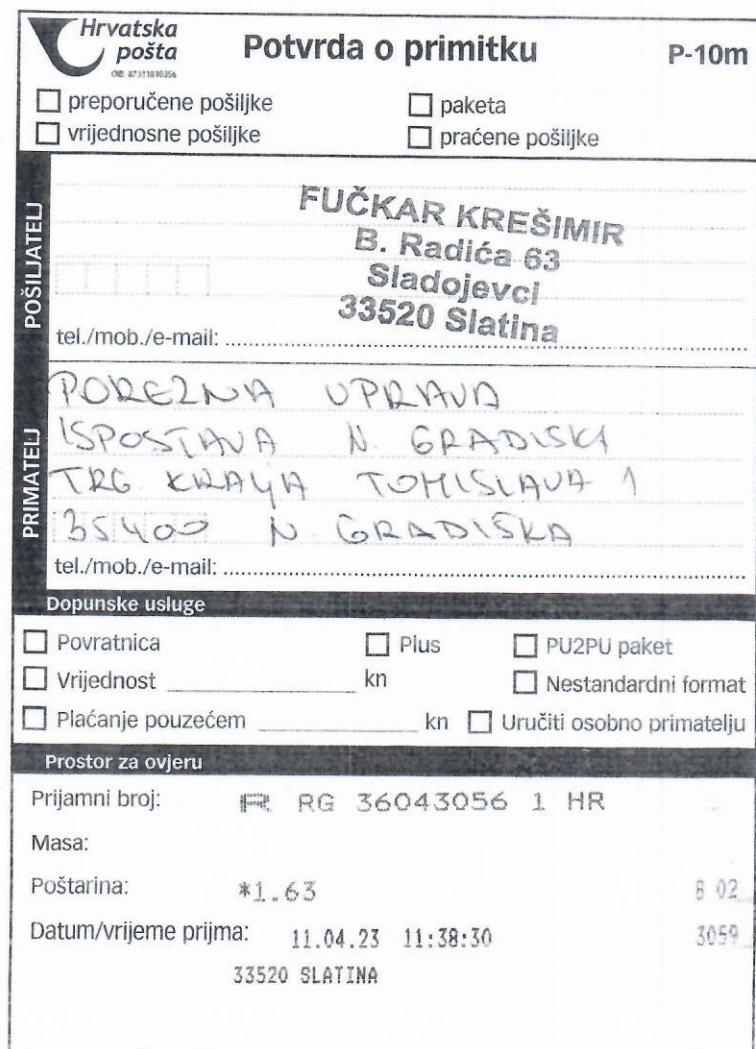 Hrvatska pošta
OIB: 87311810356
Potvrda o primitku
P-10m
preporučene pošiljke
paketa
vrijednosne pošiljke
praćene pošiljke
POŠILJATELJ
FUČKAR KREŠIMIR
B. Radića 63
Sladojevci
33520 Slatina
tel./mob./e-mail:
PRIMATELJ
POREZNA UPRAVA
ISPOSTAVA N. GRADISKA
TRG KRALJA TOMISLAVA 1
35400 N. GRADIŠKA
tel./mob./e-mail:
Dopunske usluge
Povratnica
Plus
PU2PU paket
Vrijednost kn
Nestandardni format
Plaćanje pouzećem kn
Uručiti osobno primatelju
Prostor za ovjeru
Prijamni broj: R RG 36043056 1 HR
Masa:
Poštarina: *1.63
8 02
Datum/vrijeme prijma: 11.04.23 11:38:30
3059
33520 SLATINA